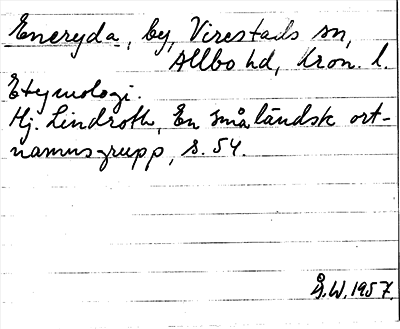 Eneryda, by, Virestads sn,
Allbo hd, Kron. l.
Etymologi.
Hj. Lindroth, En småländsk ort-
namnsgrupp, s. 54.
Å.W. 1957.